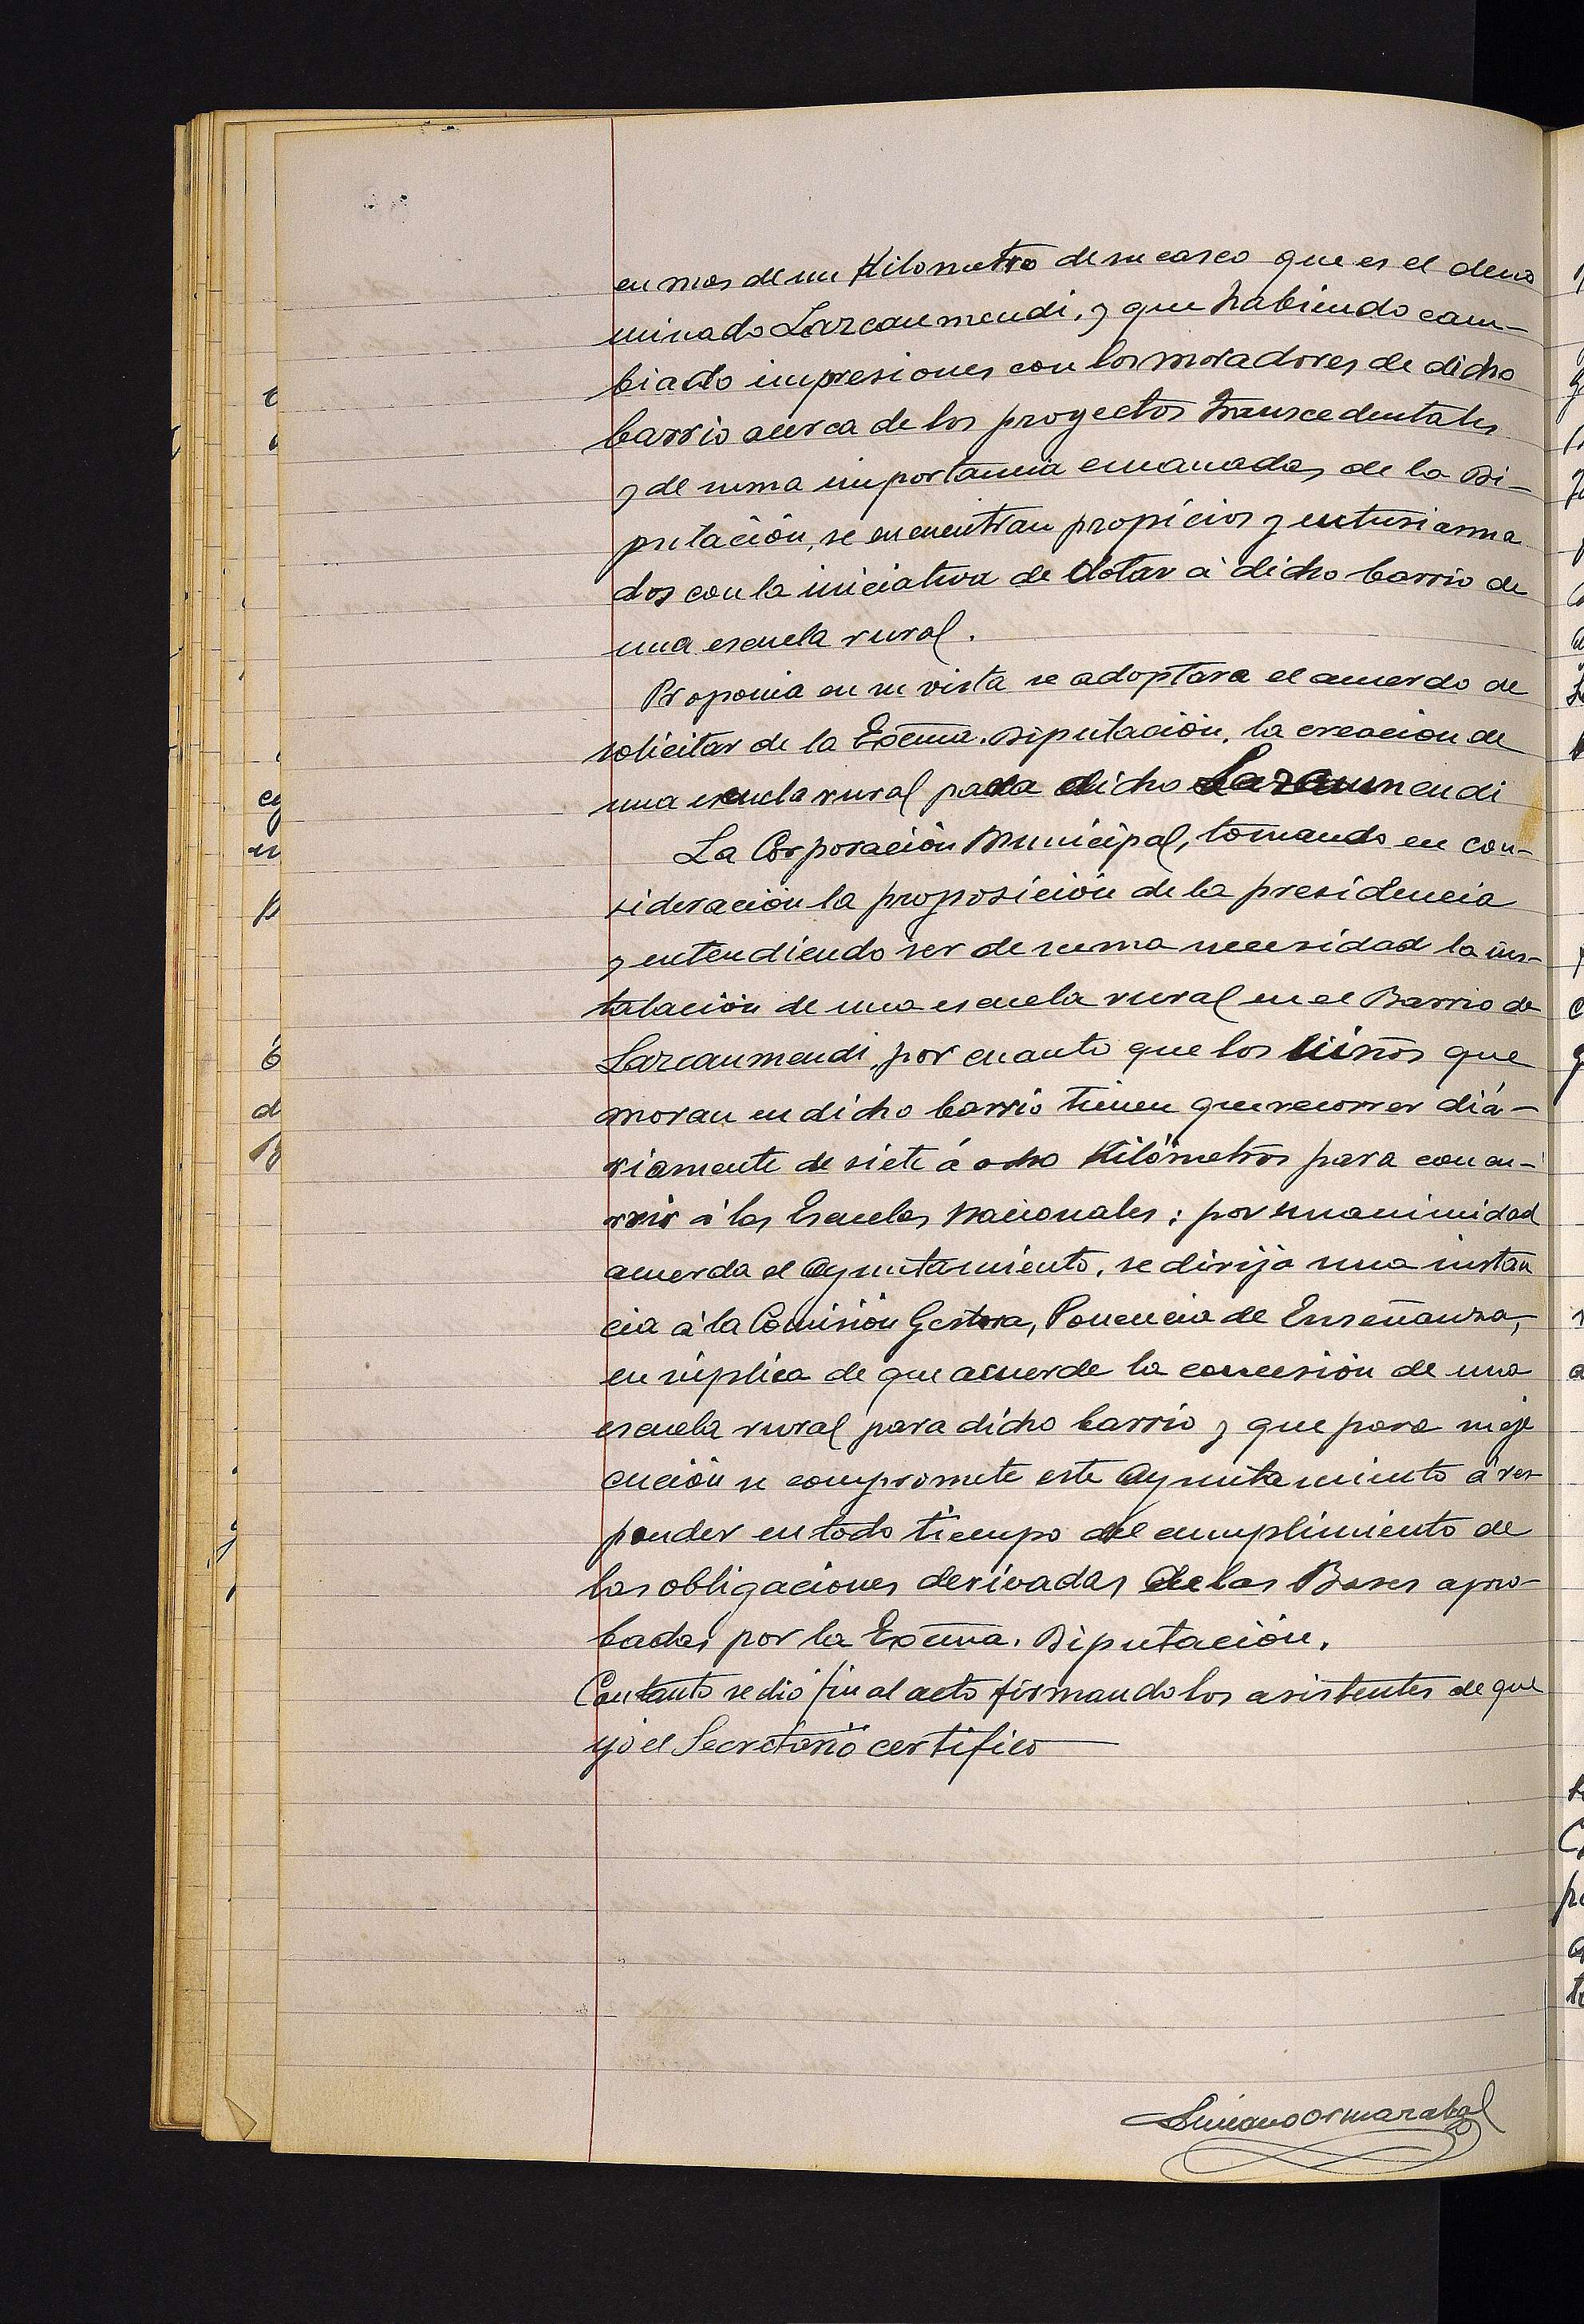 en mas de un Kilometro de su casco que es el deno
minado Lazcaumendi, y que habiendo cam-
biado impresiones con los moradores de dicho
barrio acerca de los proyectos transcedentales
y de suma importancia emanadas de la Di-
putación, se encuentran propicios y entusiasma
dos con la iniciativa de dotar á dicho barrio de
una escuela rural.
Proponia en su vista se adoptara el acuerdo de
solicitar de la Excma. Diputación, la creacion de
una escuela rural para dicho Lazcaumendi
La Corporación Municipal, tomando en con-
sideración la proposición de la presidencia
y entendiendo ser de suma necesidad la ins-
talación de una escuela rural en el Barrio de
Lazcaumendi, por cuanto que los niños que
moran en dicho barrio tienen que recorrer diá-
riamente de siete á ocho Kilómetros para concu-
rrir á las Escuelas Nacionales; por unanimidad
acuerda el Ayuntamiento, se dirija una instan
cia á la Comisión Gestora, Ponencia de Enseñanza,
en súplica de que acuerde la concesión de una
escuela rural para dicho barrio y que para su eje
cución se compromete este Ayuntamiento á res
ponder en todo tiempo del cumplimiento de
las obligaciones derivadas de las Bases apro-
badas por la Excma. Diputación.
Con tanto se dió fin al acto firmando los asistentes de que
yo el Secretario certifico
Ormazabal